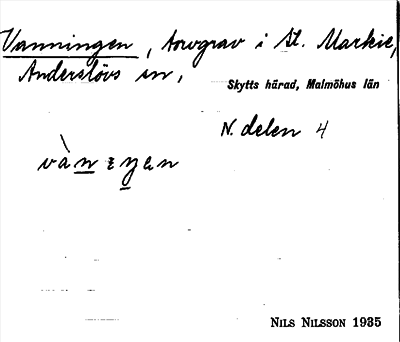 Vanningen, torvgrav i St. Markie,
Anderslövs sn,
Skytts härad, Malmöhus län
N. delen 4
vànɪŋən
NILS NILSSON 1935